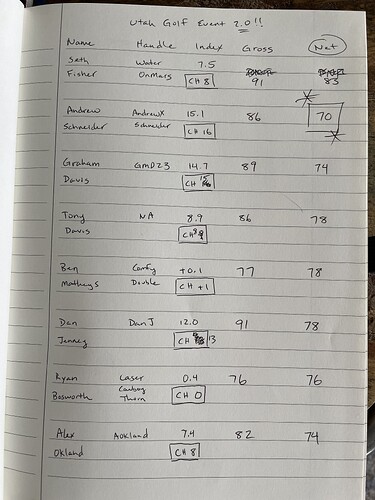 Utah Golf Event 2.0!!
Name Handle Index Gross Net
Seth Water 7.5
Fisher OnMars CH 8 91 83
Andrew AndrewX 15.1 86 70
Schneider Schneider CH 16
Graham GMD23 14.7 89 74
Davis CH 15
Tony NA 8.9 86 78
Davis CH
Ben Comfy +0.1 77 78
Matheys Double CH +1
Dan DanJ 12.0 91 78
Jenney CH 13
Ryan Laser 0.4 76 76
Bosworth CH 0
Alex Aokland 7.4 82 74
Okland CH 8